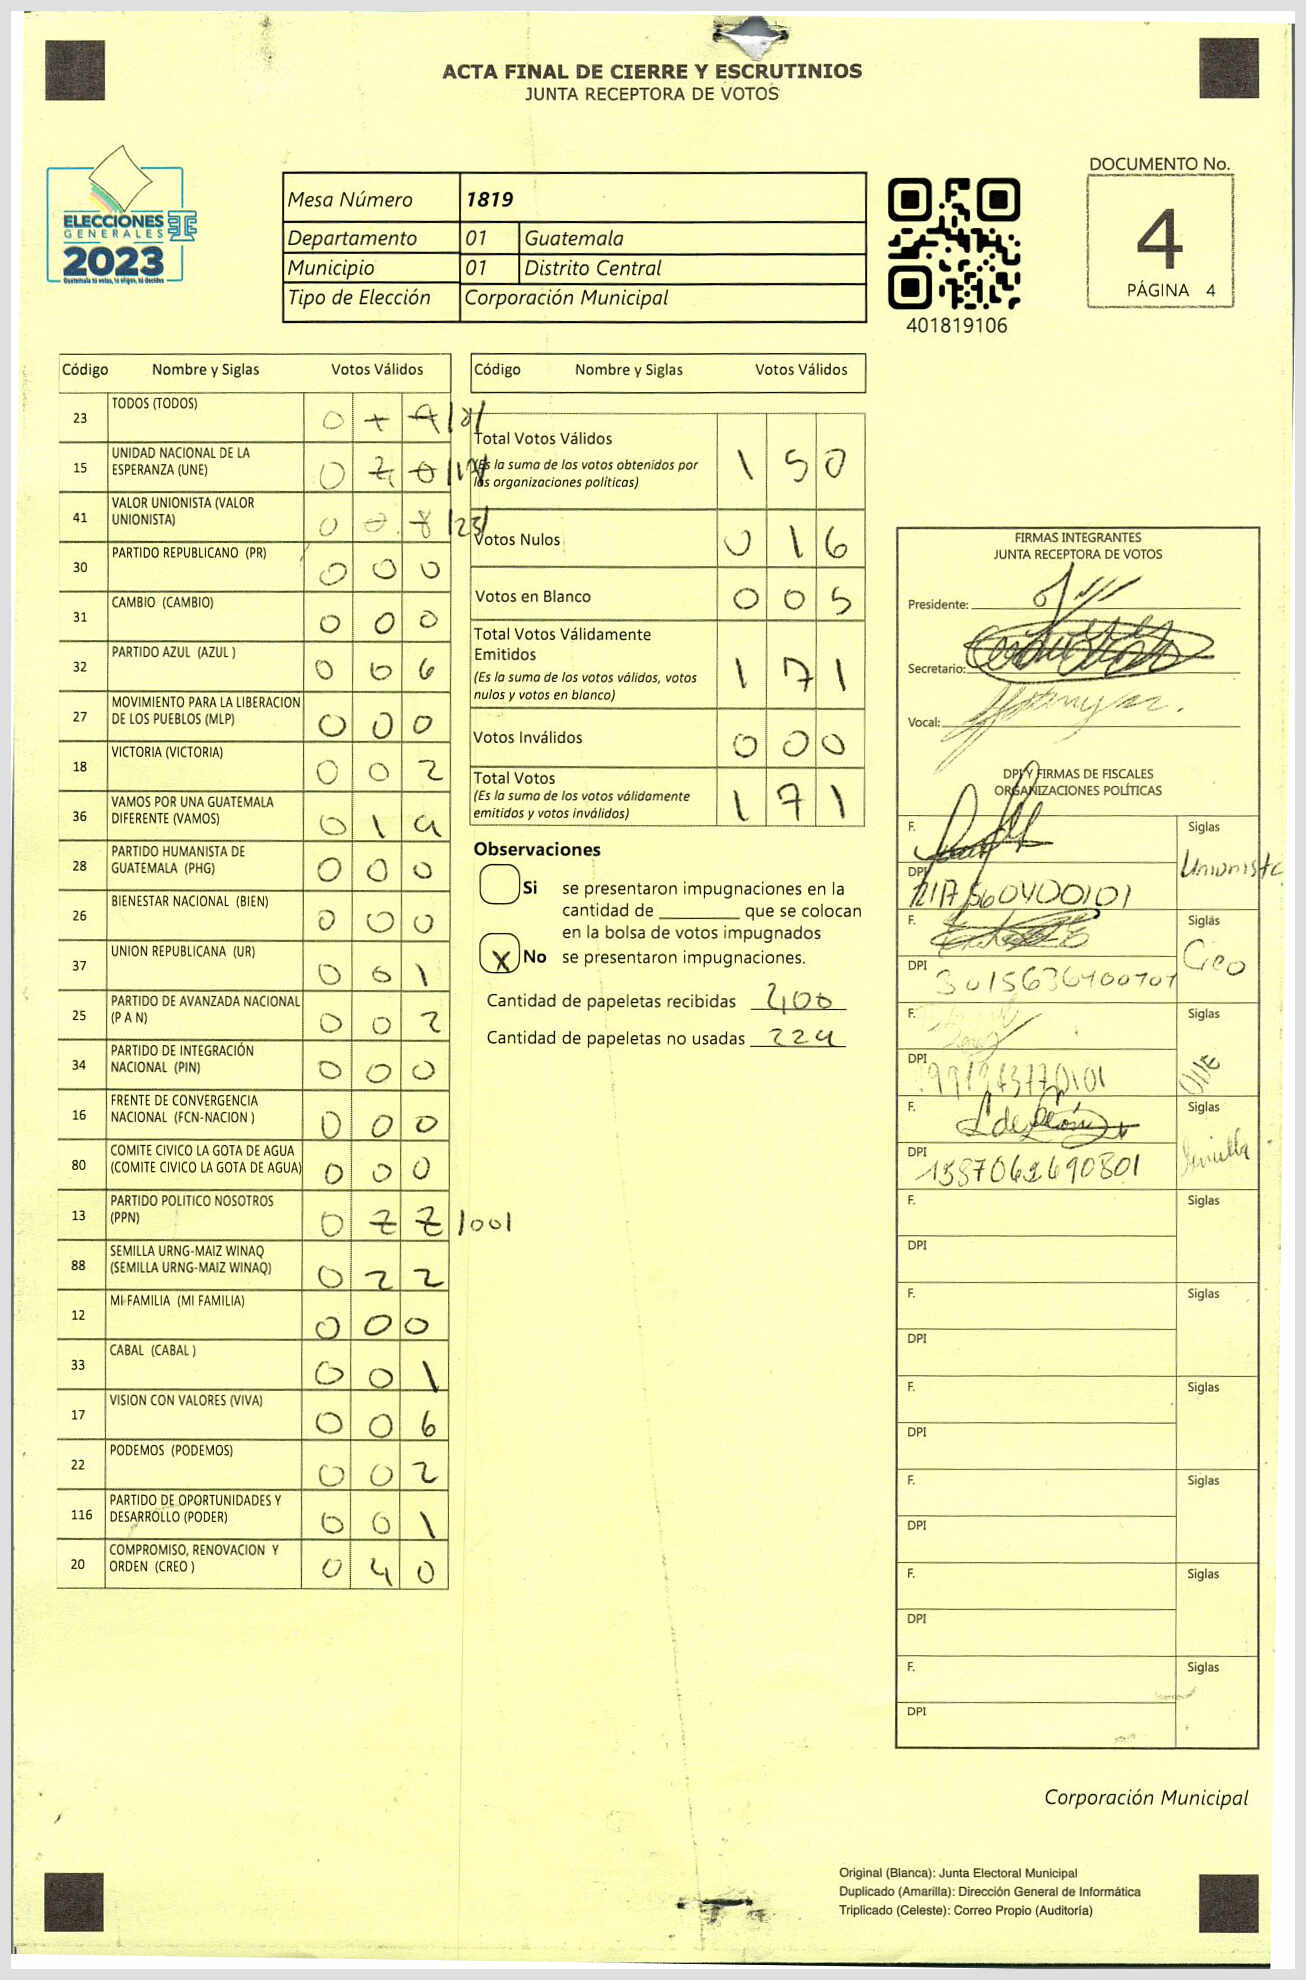 ACTA FINAL DE CIERRE Y ESCRUTINIOS
JUNTA RECEPTORA DE VOTOS
ELECCIONES
GENERALES
2023
Guatemala tú votas, tú eliges, tú decides
Mesa Número 1819
Departamento 01 Guatemala
Municipio 01 Distrito Central
Tipo de Elección Corporación Municipal
401819106
DOCUMENTO No.
4
PÁGINA 4
Código Nombre y Siglas Votos Válidos
23 TODOS (TODOS) 0
15 UNIDAD NACIONAL DE LA ESPERANZA (UNE) 0
41 VALOR UNIONISTA (VALOR UNIONISTA) 0 /23/
30 PARTIDO REPUBLICANO (PR) 0 0 0
31 CAMBIO (CAMBIO) 0 0 0
32 PARTIDO AZUL (AZUL ) 0 0 6
27 MOVIMIENTO PARA LA LIBERACION DE LOS PUEBLOS (MLP) 0 0 0
18 VICTORIA (VICTORIA) 0 0 2
36 VAMOS POR UNA GUATEMALA DIFERENTE (VAMOS) 0 1 9
28 PARTIDO HUMANISTA DE GUATEMALA (PHG) 0 0 0
26 BIENESTAR NACIONAL (BIEN) 0 0 0
37 UNION REPUBLICANA (UR) 0 0 1
25 PARTIDO DE AVANZADA NACIONAL (P A N) 0 0 2
34 PARTIDO DE INTEGRACIÓN NACIONAL (PIN) 0 0 0
16 FRENTE DE CONVERGENCIA NACIONAL (FCN-NACION ) 0 0 0
80 COMITE CIVICO LA GOTA DE AGUA (COMITE CIVICO LA GOTA DE AGUA) 0 0 0
13 PARTIDO POLITICO NOSOTROS (PPN) 0 2 2 /001
88 SEMILLA URNG-MAIZ WINAQ (SEMILLA URNG-MAIZ WINAQ) 0 2 2
12 MI FAMILIA (MI FAMILIA) 0 0 0
33 CABAL (CABAL ) 0 0 1
17 VISION CON VALORES (VIVA) 0 0 6
22 PODEMOS (PODEMOS) 0 0 2
116 PARTIDO DE OPORTUNIDADES Y DESARROLLO (PODER) 0 0 1
20 COMPROMISO, RENOVACION Y ORDEN (CREO ) 0 4 0
Código Nombre y Siglas Votos Válidos
Total Votos Válidos 1 5 0
(Es la suma de los votos obtenidos por
las organizaciones políticas)
Votos Nulos 0 1 6
Votos en Blanco 0 0 5
Total Votos Válidamente
Emitidos 1 7 1
(Es la suma de los votos válidos, votos
nulos y votos en blanco)
Votos Inválidos 0 0 0
Total Votos 1 7 1
(Es la suma de los votos válidamente
emitidos y votos inválidos)
Observaciones
Si se presentaron impugnaciones en la
cantidad de ________ que se colocan
en la bolsa de votos impugnados
X No se presentaron impugnaciones.
Cantidad de papeletas recibidas 400
Cantidad de papeletas no usadas 229
FIRMAS INTEGRANTES
JUNTA RECEPTORA DE VOTOS
Presidente:
Secretario:
Vocal:
DPI Y FIRMAS DE FISCALES
ORGANIZACIONES POLÍTICAS
F. Siglas
DPI Unionista
F. Siglas
DPI Creo
F. Siglas
DPI UNE
F. L de León Siglas
DPI 1587062690801 Semilla
F. Siglas
DPI
F. Siglas
DPI
F. Siglas
DPI
F. Siglas
DPI
F. Siglas
DPI
F. Siglas
DPI
Corporación Municipal
Original (Blanca): Junta Electoral Municipal
Duplicado (Amarilla): Dirección General de Informática
Triplicado (Celeste): Correo Propio (Auditoría)